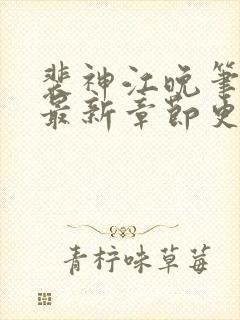 裴神江晚笔
最新章节史
青柠味草莓